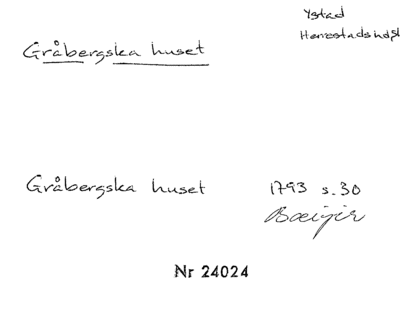 Ystad
Gråbergska huset
Gråbergska huset 1793 s.30
Nr 24024